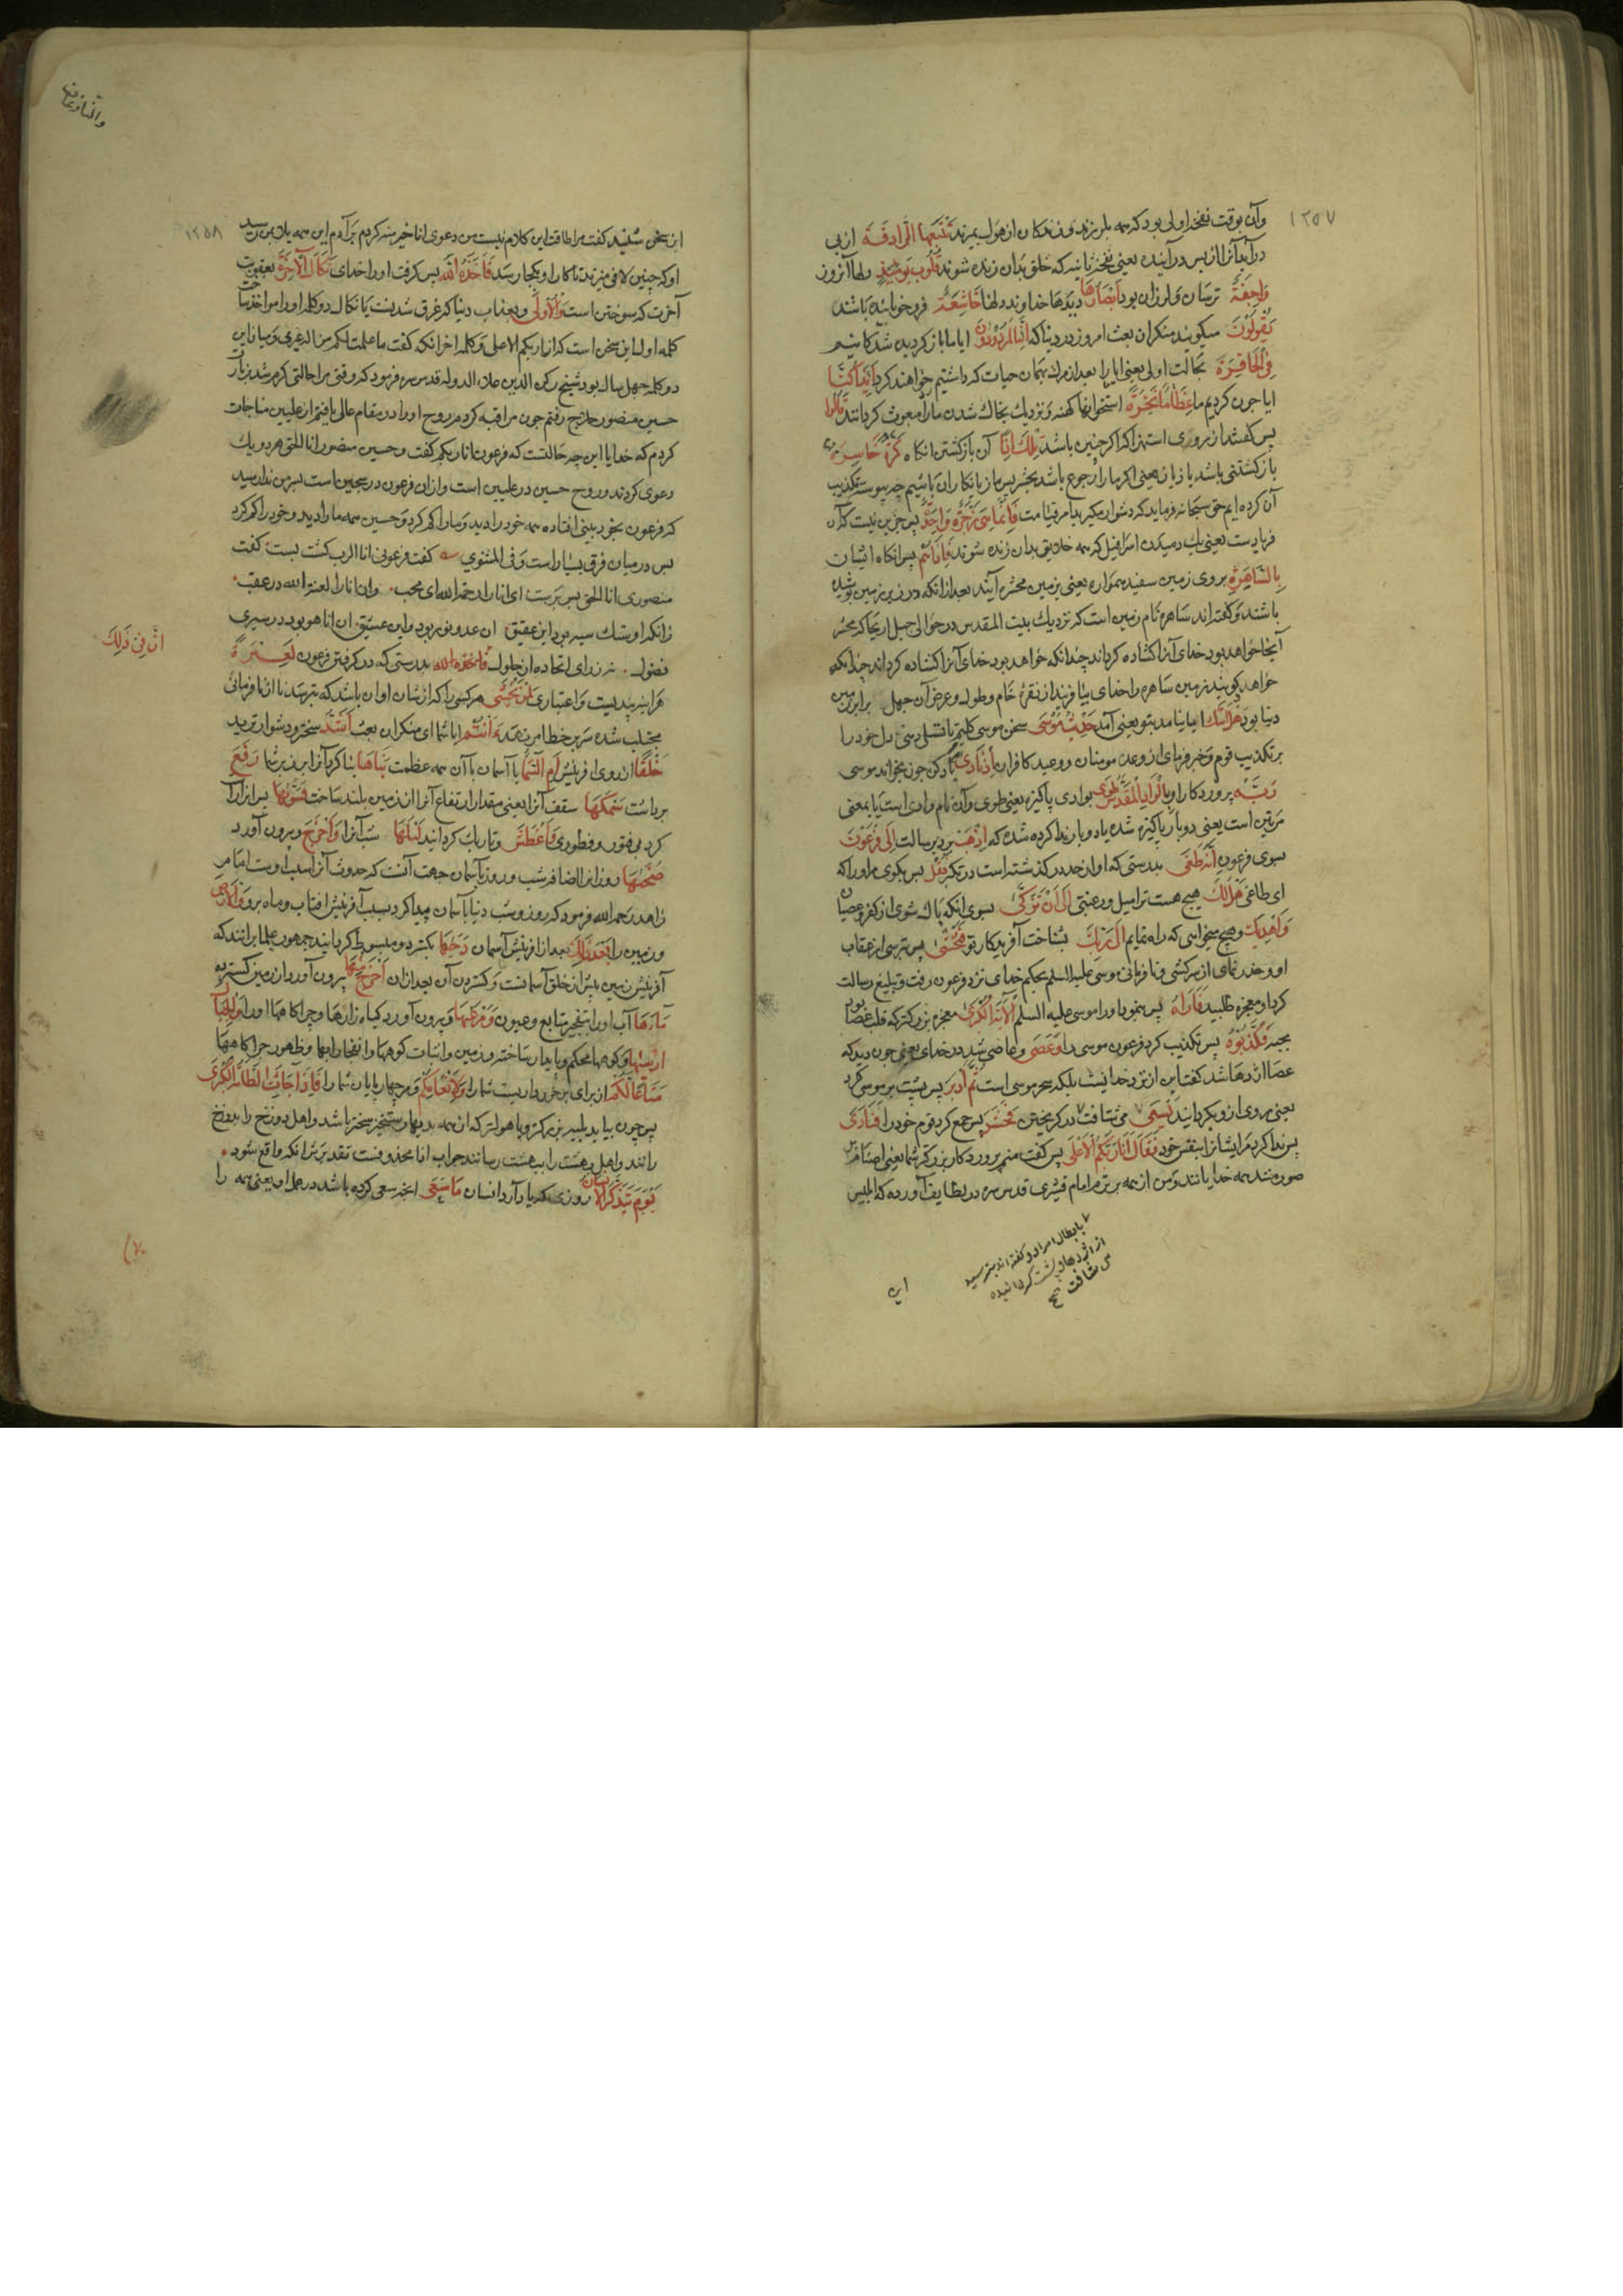 ١٢٥٧
وآن بوقت نفخه اولی بود که همه بلرزند و زندکان از هول بمیرند تَتْبَعُهَا الرَّادِفَةُ از پی
درآید آنرا از پس درآینده یعنی نفخه ثانیه که خلق بدان زنده شوند قُلُوبٌ يَوْمَئِذٍ دلها آنروز
وَاجِفَةٌ ترسان و لرزان بود أَبْصَارُهَا دیدها خداوند دلها خَاشِعَةٌ فرو خوابیده باشد
يَقُولُونَ میکویند منکران بعث امروز در دنیا که أَئِنَّا لَمَرْدُودُونَ ایا ما باز کردیده شدکانیم
فِي الْحَافِرَةِ بحالت اولی یعنی ایا ما را بعد از مرک بهمان حیات که داشتیم خواهند کرد أَئِذَا كُنَّا
ایا چون کردیم ما عِظَامًا نَخِرَةً استخوانها کهنه و نزدیک بخاک شدن ما را مبعوث کردانند قَالُوا
پس کفتند از روی استهزا که اکر چنین باشد تِلْكَ إِذًا آن بازکشتن انکاه كَرَّةٌ خَاسِرَةٌ
بازکشتنی باشد با زیان یعنی اکر ما را رجوع باشد بحشر پس ما زیانکاران باشیم چه پیوسته تکذیب
آن کرده ایم حق سبحانه فرماید که دشوار مکیرید امر قیامت فَإِنَّمَا هِيَ زَجْرَةٌ وَاحِدَةٌ پس جز این نیست که آن
فریادست یعنی یک دمیدن اسرافیل که همه خلایق بدان زنده شوند فَإِذَا هُمْ پس انکاه ایشان
بِالسَّاهِرَةِ بر روی زمین سفید هموار یعنی بزمین محشر آیند بعد از آنکه در زیر زمین پوشیده
باشند و کفته اند ساهره نام زمین است که نزدیک بیت المقدس در حوالی جبل اریحا که محشر
آنجا خواهد بود خدای آنرا کشاده کرداند چندانکه خواهد بود خدای آنرا کشاده کرداند چندانکه
خواهد کویند زمین ساهره را خدای بیافریند از نقرۀ خام و طول و عرض آن چهل برابر زمین
دنیا بود هَلْ أَتَاكَ ایا بیامد بتو یعنی آمد حَدِيثُ مُوسَى سخن موسی کلیم تا تسلی دهی دل خود را
بر تکذیب قوم و خبر فرمای از وعد مومنان و وعید کافران إِذْ نَادَاهُ یاد کن چون بخواند موسی
رَبُّهُ پروردکار او بِالْوَادِ الْمُقَدَّسِ طُوًى بوادی پاکیزه یعنی طوی و آن نام وادی است یا بمعنی
مرتین است یعنی دو بار پاکیزه شده یا دو بار ندا کرده شده که اِذْهَبْ برو برسالت إِلَى فِرْعَوْنَ
بسوی فرعون إِنَّهُ طَغَى بدرستی که او از حد درکذشته است در تکبر فَقُلْ پس بکوی مر او را که
ای طاغی هَلْ لَكَ هیچ هست ترا میل و رغبتی إِلَى أَنْ تَزَكَّى بسوی انکه پاک شوی از کفر و عصیان
وَأَهْدِيَكَ و هیچ میخواهی که راه نمایم إِلَى رَبِّكَ بشناخت آفریدکار تو فَتَخْشَى پس بترسی از عقاب
او و حذر نمای از سرکشی و نافرمانی موسی علیه السلم بحکم خدای نزد فرعون رفت و تبلیغ رسالت
کرد او معجزه طلبید فَأَرَاهُ پس بنمود او را موسی علیه السلم الْآيَةَ الْكُبْرَى معجزه بزرکتر که قلب عصا بود
بحیه فَكَذَّبَ پس تکذیب کرد فرعون موسی را وَعَصَى و عاصی شد در خدای یعنی چون دید که
عصا اژدها شد کفت این از نزد خدا نیست بلکه سحر موسی است ثُمَّ أَدْبَرَ پس پشت بر موسی کرد
یعنی روی ازو بکردانید يَسْعَى می شتافت در کریختن فَحَشَرَ پس جمع کرد قوم خود را فَنَادَى
پس ندا کرد مر ایشانرا بنفس خود فَقَالَ أَنَا رَبُّكُمُ الْأَعْلَى پس کفت منم پروردکار بزرکتر شما یعنی اصنام بر
صورت منند همه خدایانند و من از همه برترم امام قشیری قدس سره در لطایف آورده که ابلیس
بابطال امر او و کفته اند بترسید
از اژدها و پشت کردانیده
می شتافت
این
والنازعات
١٢٥٨
این سخن شنید کفت مرا طاقت این کلام نیست من دعوی انا خیر منه کردم بر آدم این همه بلا بمن رسید
او که چنین لافی میزند تا کار او بکجا رسد فَأَخَذَهُ اللَّهُ پس کرفت او را خدای نَكَالَ الْآخِرَةِ بعقوبت
آخرت که سوختن است وَالْأُولَى و بعذاب دنیا که غرق شدنست یا نکال دو کلمه او را مواخذ ساخت
کلمه اول این سخن است که انا ربکم الاعلی و کلمه اخر انکه کفت ما علمت لکم من اله غیری و میان این
دو کلمه چهل سال بود شیخ رکن الدین علاء الدوله قدس سره فرمود که وقتی مرا حالتی کرم شد بزیارت
حسین منصور حلاج رفتم چون مراقبه کردم روح او را در مقام عالی یافتم از علیین مناجات
کردم که خدایا این چه حالتست که فرعون انا ربکم کفت و حسین منصور انا الحق هر دو یک
دعوی کردند و روح حسین در علیین است و ازان فرعون در سجین است بسرمن ندا رسید
که فرعون بخود بینی افتاده همه خود را دید و ما را کم کرد و حسین همه ما را دید و خود را کم کرد
پس در میان فرق بسیار است و فی المثنوی کفت فرعونی انا الرب کشت پست کفت
منصوری انا الحق پس برست ای انا را رحمة الله ای محب وان انا را لعنة الله در عقب
زانکه او سنک سیه بود این عقیق ان عدو نور بود و این عشیق ان انا هو بود در سر ای
فضول نه ز رای اتحاد و از حلول إِنَّ فِي ذَلِكَ بدرستی که در کرفتن فرعون لَعِبْرَةً
هراینه پندیست و اعتباری لِمَنْ يَخْشَى مر کسی را که از شان او ان باشد که بترسد تا از نافرمانی
مجتنب شده سر بر خط امر نهد ءَأَنْتُمْ ایا شما ای منکران بعث أَشَدُّ سخترو و دشوارترید
خَلْقًا از روی افرینش أَمِ السَّمَاءُ یا آسمان با آن همه عظمت بَنَاهَا بنا کرد آنرا بر زبر شما رَفَعَ
برداشت سَمْكَهَا سقف آنرا یعنی مقدار ارتفاع آنرا از زمین بلند ساخت فَسَوَّاهَا پس راست
کرد بی فتور و فطوری وَأَغْطَشَ و تاریک کردانید لَيْلَهَا شب آنرا وَأَخْرَجَ و بیرون آورد
ضُحَاهَا روز انرا اضافه شب و روز بآسمان جهت آنست که حدوث آن بسبب اوست امام
زاهد رحمه الله فرمود که روز و شب دنیا بآسمان پیدا کرد بسبب آفرینش افتاب و ماه برو وَالْأَرْضَ
و زمین را بَعْدَ ذَلِكَ بعد از افرینش آسمان دَحَاهَا بکسترد و مبسوط کردانید جمهور علما برانند که
آفرینش زمین پیش از خلق آسمانست و کستردن آن بعد ازان أَخْرَجَ مِنْهَا بیرون آورد از زمین کسترده
مَاءَهَا آب او را بتفجیر منابع و عیون وَمَرْعَاهَا و بیرون آورد کیاه زارها و چراکاهها او را وَالْجِبَالَ
أَرْسَاهَا و کوهها محکم و پایدار ساخته و زمین و اثبات کوهها و انفجار ابها و ظهور چراکاهها
مَتَاعًا لَكُمْ از برای برخورداریست شما را وَلِأَنْعَامِكُمْ و مر چهارپایان شما را فَإِذَا جَاءَتِ الطَّامَّةُ الْكُبْرَى
پس چون بیاید بلیه بزرکتر و یا هولتر که ان همه بدیها رستخیز سخت باشد و اهل دوزخ را بدوزخ
رانند و اهل بهشت را ببهشت رسانند جواب اذا محذوفست تقدیرش انکه واقع شود
يَوْمَ يَتَذَكَّرُ الْإِنْسَانُ روزی که یاد آرد انسان مَا سَعَى انچه سعی کرده باشد در عمل او یعنی همه را
ان فی ذلك